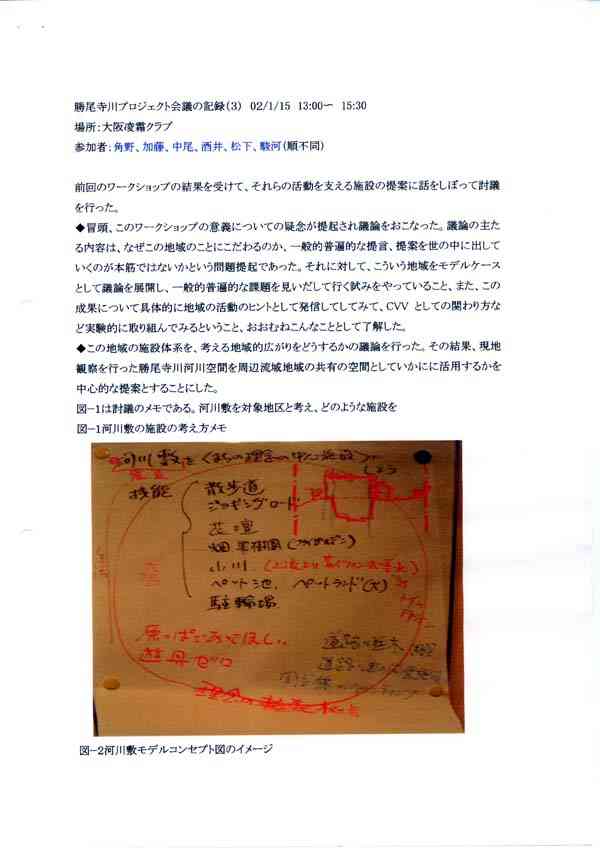 勝尾寺川プロジェクト会議の記録(3)　02/1/15　13:00～　15:30
場所:大阪凌霜クラブ
参加者:角野、加藤、中尾、酒井、松下、駿河(順不同)
前回のワークショップの結果を受けて、それらの活動を支える施設の提案に話をしぼって討議
を行った。
◆冒頭、このワークショップの意義についての疑念が提起され議論をおこなった。議論の主た
る内容は、なぜこの地域のことにこだわるのか、一般的普遍的な提言、提案を世の中に出して
いくのが本筋ではないかという問題提起であった。それに対して、こういう地域をモデルケース
として議論を展開し、一般的普遍的な課題を見いだして行く試みをやっていること、また、この
成果について具体的に地域の活動のヒントとして発信してしてみて、CVV としての関わり方な
ど実験的に取り組んでみるということ、おおむねこんなこととして了解した。
◆この地域の施設体系を、考える地域的広がりをどうするかの議論を行った。その結果、現地
観察を行った勝尾寺川河川空間を周辺流域地域の共有の空間としていかにに活用するかを
中心的な提案とすることにした。
図-1は討議のメモである。河川敷を対象地区と考え、どのような施設を
図-1河川敷の施設の考え方メモ
河川敷を〈まちの理念の中心施設〉
機能
散歩道
ジョギングロード
花壇
畑 果樹園
小川
ペット池、ペットランド(犬)
駐輪場
原っぱであってほしい
遊具ゼロ
図-2河川敷モデルコンセプト図のイメージ